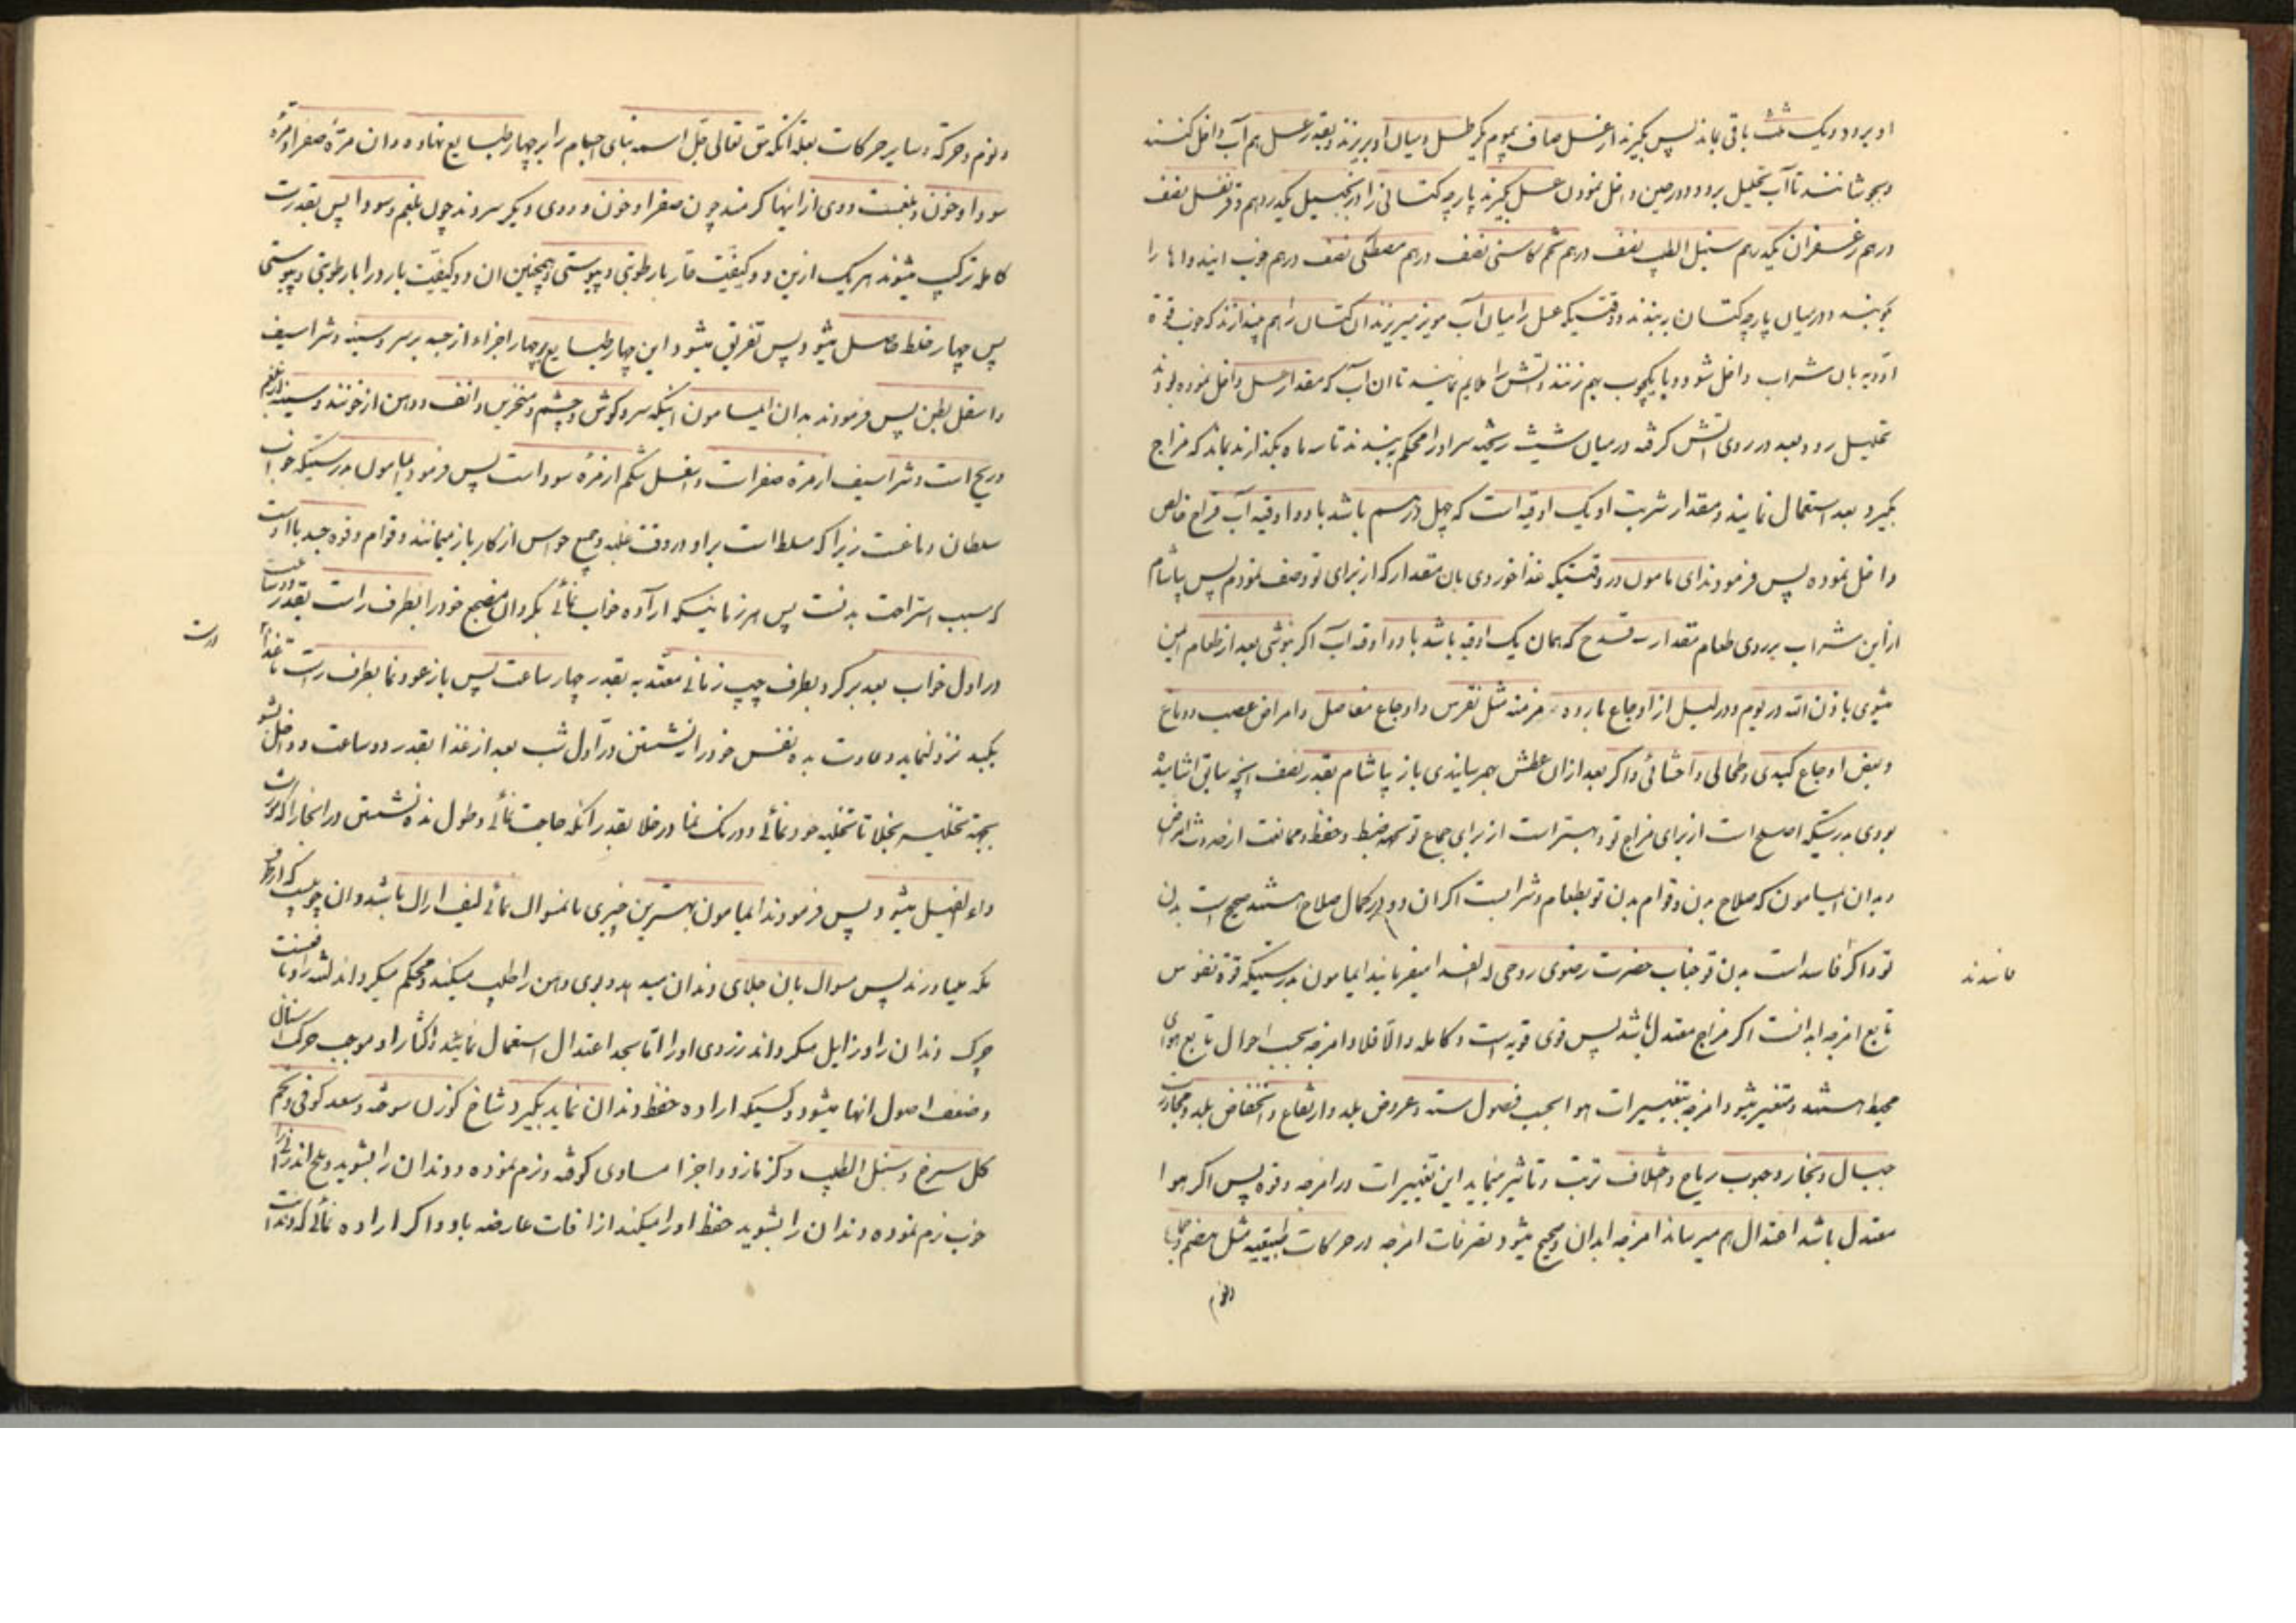 او برود و یک ثلث باقی بماند پس بگیرند از عسل صاف بموم یکرطل و میان او بریزند و بقدر عسل هم آب داخل کنند
و بجوشانند تا آب تحلیل برود و در حین داخل نمودن عسل بگیرند پارچه کتانی را و زنجبیل یکدرهم و قرنفل نصف
درهم زعفران یکدرهم سنبل الطیب نصف درهم تخم کاسنی نصف درهم مصطکی نصف درهم خوب اینها را
بکوبند و در میان پارچه کتان ببندند و وقتیکه عسل را میان آب مویز میریزند آن کتان را هم بیندازند که خوب قوة
ادویه بان شراب داخل شود و با یکچوب بهم زنند و آتش را ملایم نمایند تا ان آب که مقدار عسل داخل نموده بودند
تحلیل رود و بعد در روی آتش گرفته در میان شیشه ریخته سر او را محکم ببندند تا سه ماه بگذارند بماند که مزاج
بگیرد بعد استعمال نمایند و مقدار شربت او یک اوقیه است که چهل درهم باشد با دو اوقیه آب قراح خالص
داخل نموده پس فرمودند ای مامون در وقتیکه غذا خوردی بان مقدار که از برای تو وصف نمودم پس بیاشام
از این شراب بر روی طعام مقدار سه قدح که همان یک اوقیه باشد با دو اوقیه آب اگر بنوشی بعد از طعام ایمن
میشوی باذن الله در یوم و در لیل از اوجاع بارده مزمنه مثل نقرس و اوجاع مفاصل و امراض عصب و دماغ
و بعض اوجاع کبدی و طحالی و احشائی و اگر بعد از ان عطش بهم رسانیدی باز بیاشام بقدر نصف انچه سابق اشامیده
بودی بدرستیکه اصلح است از برای مزاج تو و بهتر است از برای جماع تو و ضبط و حفظ و ممانعت از حدوث امراض
و بدان ایمامون که صلاح بدن و قوام بدن تو بطعام و شرابست اگر ان دو در کمال صلاح هستند صحیح است بدن
تو و اگر فاسد است بدن تو جناب حضرت رضوی روحی له الفدا میفرمایند ایمامون بدرستیکه قوة نفوس
فاسدند
تابع امزجه ابدانست اگر مزاج معتدل باشد پس قوی قویه است و کامله و الا فلا و امزجه بحسب احوال تابع هوای
محیط هستند و متغیر میشود امزجه بتغییرات هوا بحسب فصول سنه و عروض بلد و ارتفاع و انخفاض بلد و مجاورت
جبال و بخار و هبوب ریاح و اختلاف تربت و تاثیر مینماید این تغییرات در امزجه و قوه پس اگر هوا
معتدل باشد اعتدال هم میرساند امزجه ابدان و صحیح میشود تصرفات امزجه در حرکات طبیعیه مثل هضم و جماع
و نوم
و نوم و حرکة و سایر حرکات بعلة انکه حق تعالی جل اسمه بنای اجسام را بر چهار طبایع نهاده و ان مرّة صفرا و مرّة
سودا و خون و بلغمست و دوی از اینها گرمند چون صفرا و خون و دوی دیگر سردند چون بلغم و سودا پس بقدرت
کامله ترکیب میشوند هر یک ازین دو کیفیّت حار با رطوبتی و یبوستی و همچنین ان دو کیفیّت بارد را با رطوبتی و یبوستی
پس چهار خلط حاصل میشود پس تفرق میشود این چهار طبایع بچهار اجزاء از جسد بر سر و سینه و شراسیف
و اسفل بطن پس فرمودند بدان ایمامون اینکه سر و گوش و چشم و منخرین و انف و دهن از خونند و سینه از بلغم
و ریح است و شراسیف از مره صفر است و اسفل شکم از مره سودا است پس فرمود یامامون بدرستیکه خواب
سلطان دماغست زیرا که مسلط است بر او در وقت غلبه و جمیع حواس از کار باز میمانند و قوام و قوه جسد بااوست
که سبب استراحت بدنست پس هر زمانیکه اراده خواب نمائی بگردان مضجع خود را بطرف راست بقدر دو ساعت
در اول خواب بعد برگرد بطرف چپ زمانی معتد به بقدر چهار ساعت پس باز عود نما بطرف راست تا غذا
است
بکبد نزول نماید و عادت بده نفس خود را نشستن در اول شب بعد از غذا بقدر دو ساعت و داخل شو
بجهة تخلیه بخلا تا تخلیه خود نمائی و درنگ نما در خلا بقدر انکه حاجت نمائی و طول مده نشستن در انجا را که مورث
داء الفیل میشود پس فرمودند ایمامون بهترین چیزی که مسواک نمائی لیف اراک باشد و ان چوبیست که از
مکه میاورند پس مسواک بان جلای دندان میدهد و بوی دهن را طیب میکند و محکم میگرداند لثه را و نافعست
چرک دندان را و زایل میگرداند زردی او را اما بحد اعتدال استعمال نمائید و اکثار او موجب حرک اسنان
و ضعف اصول انها میشود و کسیکه اراده حفظ دندان نماید بگیرد شاخ گوزن سوخته و سعد کوفی و تخم
گل سرخ و سنبل الطیب و کزمازو و اجزا مساوی کوفته و نرم نموده و دندان را بشوید و ملح اندرانی را
خوب نرم نموده دندان را بشوید حفظ او را میکند از افات عارضه باو و اگر اراده نمائی که دندانت